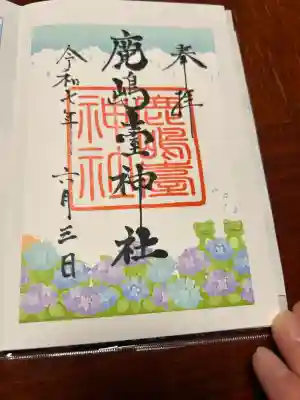 奉拝
鹿嶋臺神社
鹿嶋臺
神社
令和七年 六月三日